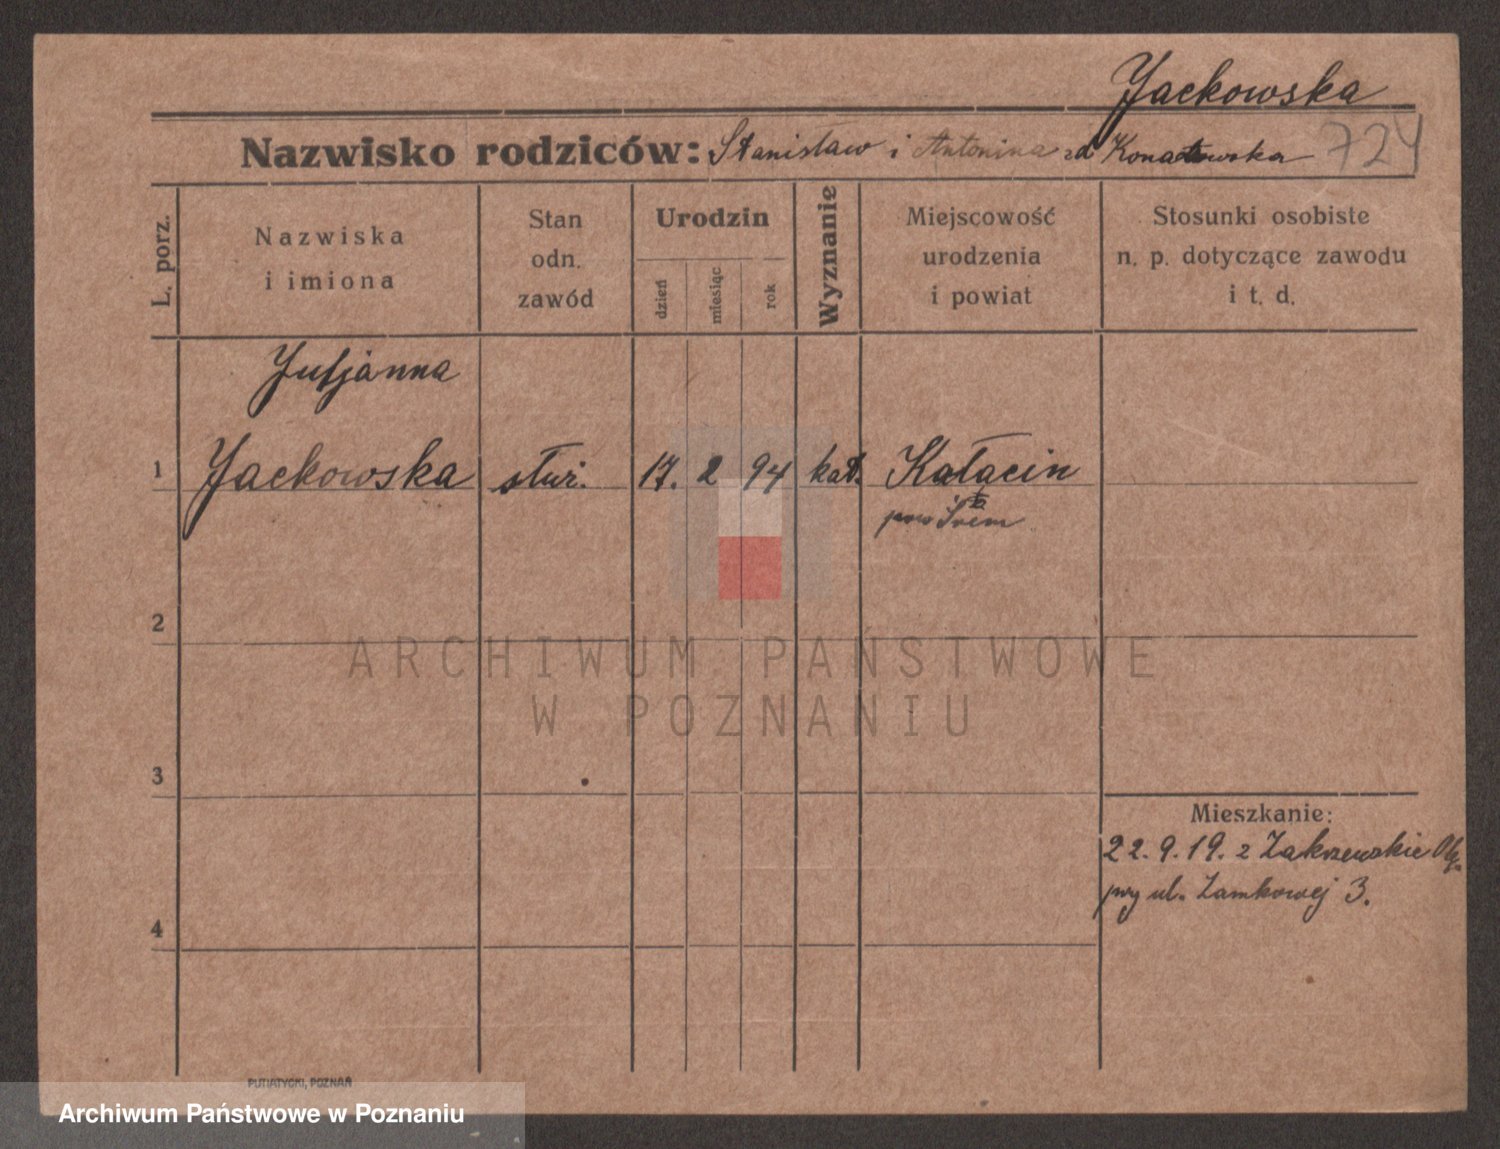 Jackowska
Nazwisko rodziców: Stanisław i Antonina zd Konatowska 724
L. porz.
Nazwiska i imiona
Stan odn. zawód
Urodzin
dzień miesiąc rok
Wyznanie
Miejscowość urodzenia i powiat
Stosunki osobiste n. p. dotyczące zawodu i t. d.
Juljanna
1 Jackowska służ. 17. 2 94 kat. Kałacin
pow Śrem
2
ARCHIWUM PAŃSTWOWE
W POZNANIU
3
Mieszkanie:
22.9.19. z Zakrzewskie
przy ul. Zamkowej 3.
4
PUTIATYCKI, POZNAŃ
Archiwum Państwowe w Poznaniu